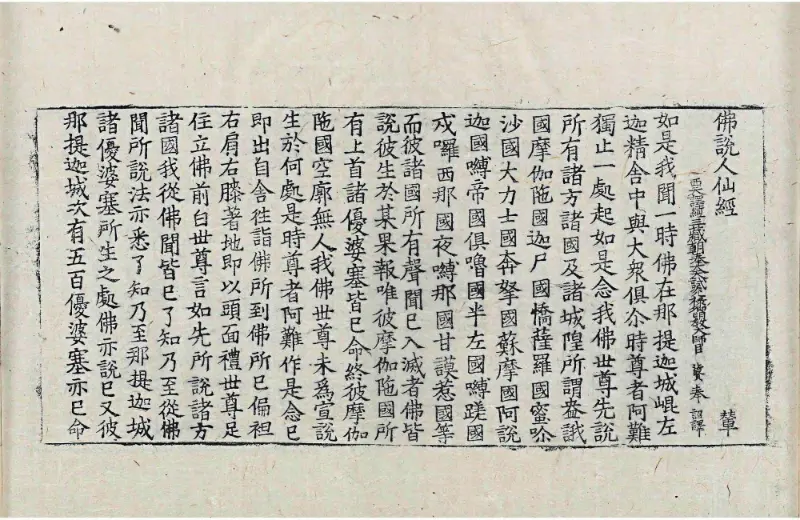 佛說人仙經 輦
三藏朝奉大夫試 奉 詔譯
如是我聞一時佛在那提迦城崐左
迦精舍中與大衆俱尒時尊者阿難
獨止一處起如是念我佛世尊先說
所有諸方諸國及諸城隍所謂鴦誐
國摩伽陁國迦尸國憍薩羅國蜜吟
沙國大力士國奔拏國蘇摩國阿說
迦國嚩帝國俱嚕國半左國嚩蹉國
戍囉西那國夜嚩那國甘謨惹國等
而彼諸國所有聲聞已入滅者佛皆
說彼生於某果報唯彼摩伽陁國所
有上首諸優婆塞皆已命終彼摩伽
陁國空廓無人我佛世尊未爲宣說
生於何處是時尊者阿難作是念已
即出自舍徃詣佛所到佛所已偏袒
右肩右膝著地即以頭面禮世尊足
住立佛前白世尊言如先所說諸方
諸國我從佛聞皆已了知乃至從佛
聞所說法亦悉了知乃至那提迦城
諸優婆塞所生之處佛亦說已又彼
那提迦城次有五百優婆塞亦已命